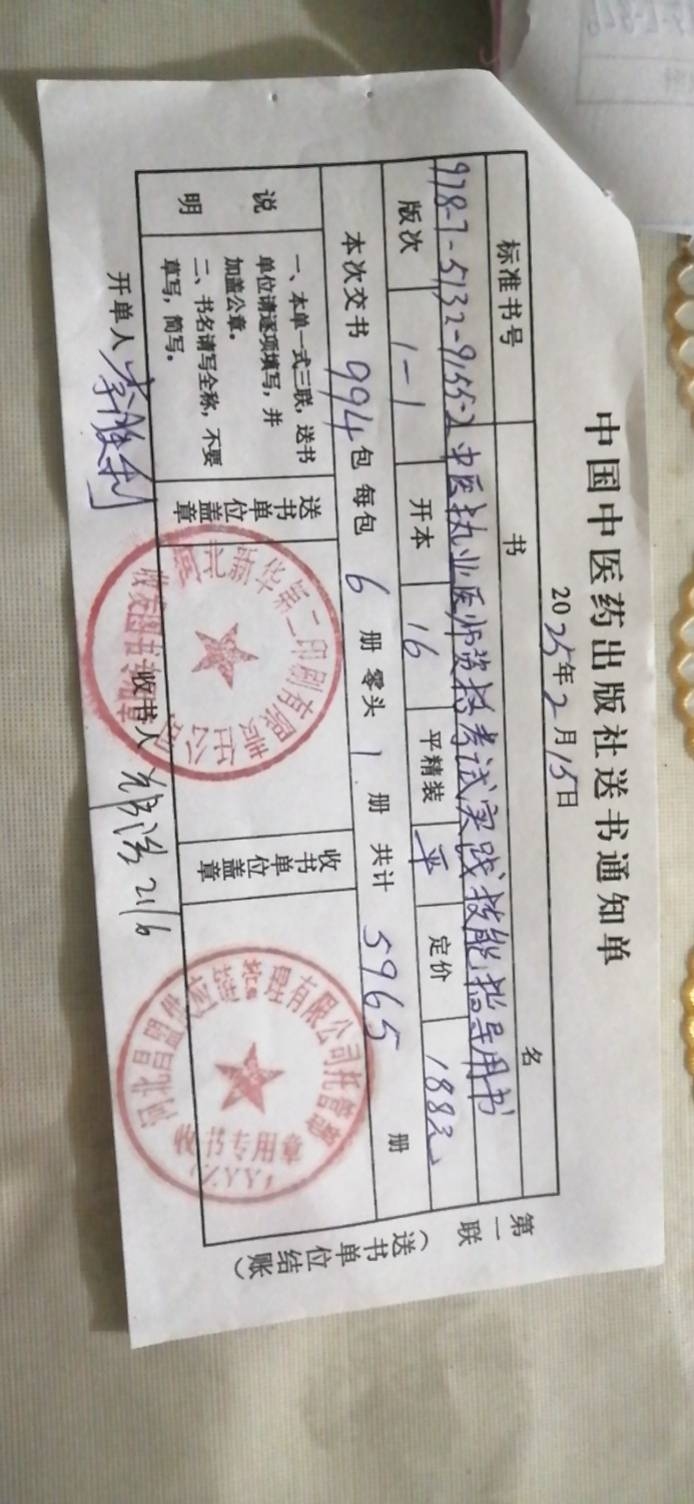 中国中医药出版社送书通知单
2025年2月15日
标准书号 书 名
978-7-5132-9155-2 中医执业医师资格考试实践技能指导用书
版次 1-1 开本 16 平精装 平 定价 188元
本次交书 994 包 每包 6 册 零头 1 册 共计 5965 册
说明
一、本单一式三联，送书单位请逐项填写，并加盖公章。
二、书名请写全称，不要草写，简写。
送书单位盖章
河北新华第二印刷有限责任公司
收书单位盖章
理有限公司托管
收书专用章
(ZYY)
开单人 李胜利
收书人 21/6
第一联（送书单位结账）